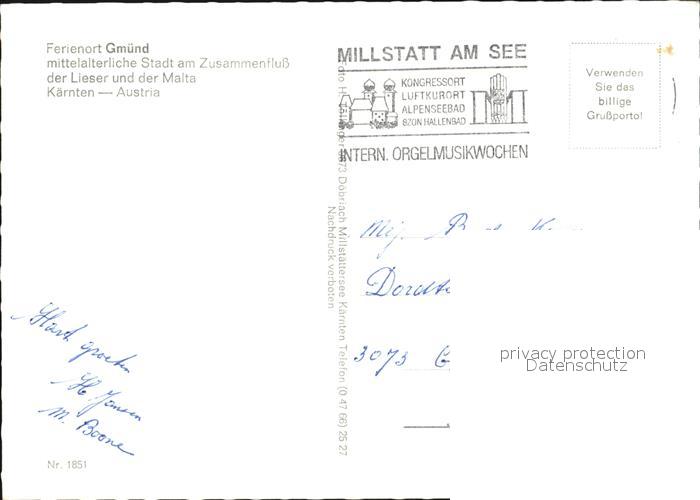 Ferienort Gmünd
mittelalterliche Stadt am Zusammenfluß
der Lieser und der Malta
Kärnten — Austria
MILLSTATT AM SEE
KONGRESSORT
LUFTKURORT
ALPENSEEBAD
BZON HALLENBAD
INTERN. ORGELMUSIKWOCHEN
Verwenden
Sie das
billige
Grußporto!
9873 Döbriach Millstättersee Kärnten Telefon (0 47 66) 25 27
Nachdruck verboten
3073
privacy protection
Datenschutz
Hart. groeten
H. Jansen
M. Boone
Nr. 1851